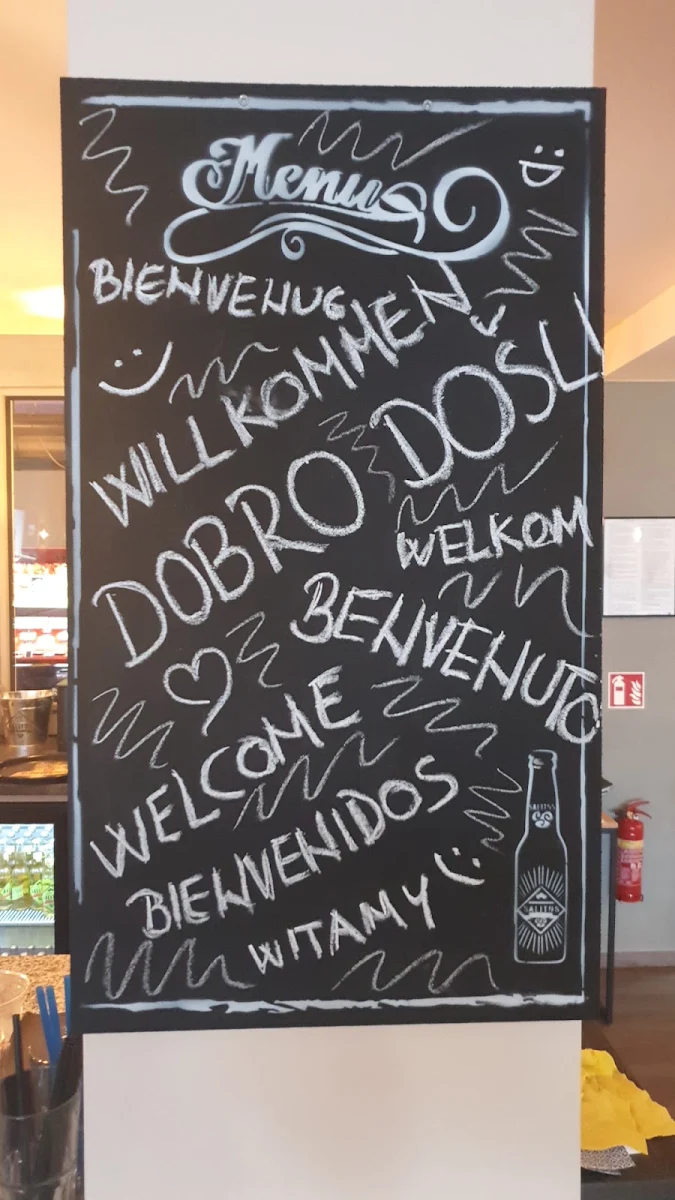 Menu
BIENVENUE
WILLKOMMEN
DOBRO DOŠLI
WELKOM
BENVENUTO
WELCOME
BIENVENIDOS
WITAMY
SALITOS
SALITOS